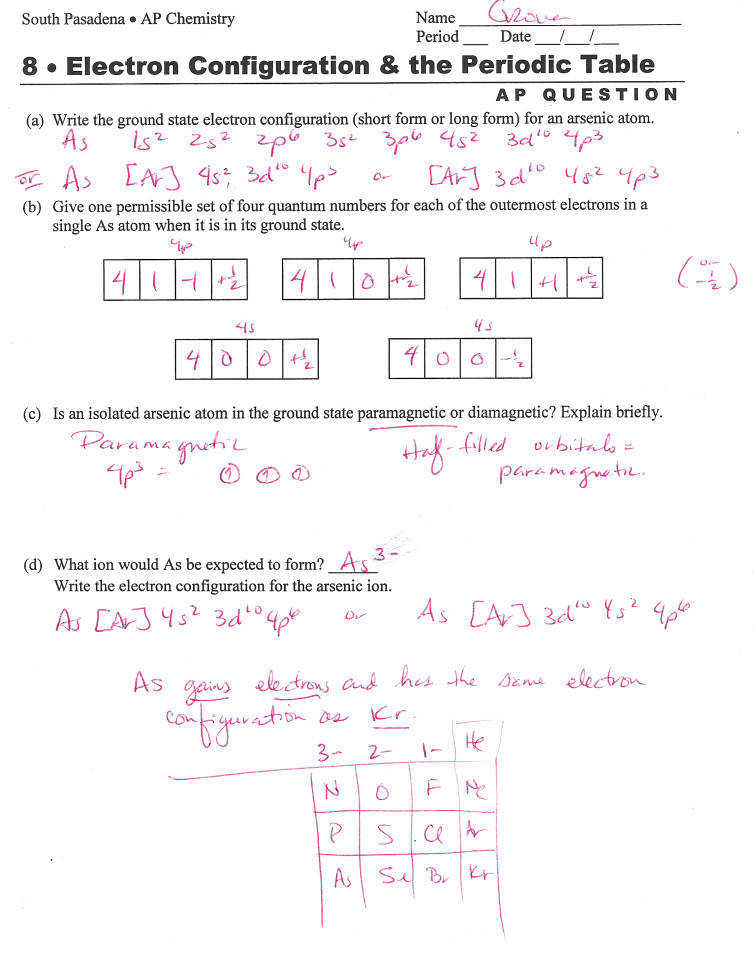 South Pasadena • AP Chemistry
Name Grover
Period ___ Date __/__/__
8 • Electron Configuration & the Periodic Table
AP QUESTION
(a) Write the ground state electron configuration (short form or long form) for an arsenic atom.
As 1s² 2s² 2p⁶ 3s² 3p⁶ 4s² 3d¹⁰ 4p³
or As [Ar] 4s², 3d¹⁰ 4p³ or [Ar] 3d¹⁰ 4s² 4p³
(b) Give one permissible set of four quantum numbers for each of the outermost electrons in a
single As atom when it is in its ground state.
4p 4p 4p
4 1 -1 +1/2 4 1 0 +1/2 4 1 +1 +1/2 (or -1/2)
4s 4s
4 0 0 +1/2 4 0 0 -1/2
(c) Is an isolated arsenic atom in the ground state paramagnetic or diamagnetic? Explain briefly.
Paramagnetic Half-filled orbitals =
4p³ = ① ① ① paramagnetic.
(d) What ion would As be expected to form? As³⁻
Write the electron configuration for the arsenic ion.
As [Ar] 4s² 3d¹⁰ 4p⁶ or As [Ar] 3d¹⁰ 4s² 4p⁶
As gains electrons and has the same electron
configuration as Kr.
3- 2- 1- He
N O F Ne
P S Cl Ar
As Se Br Kr